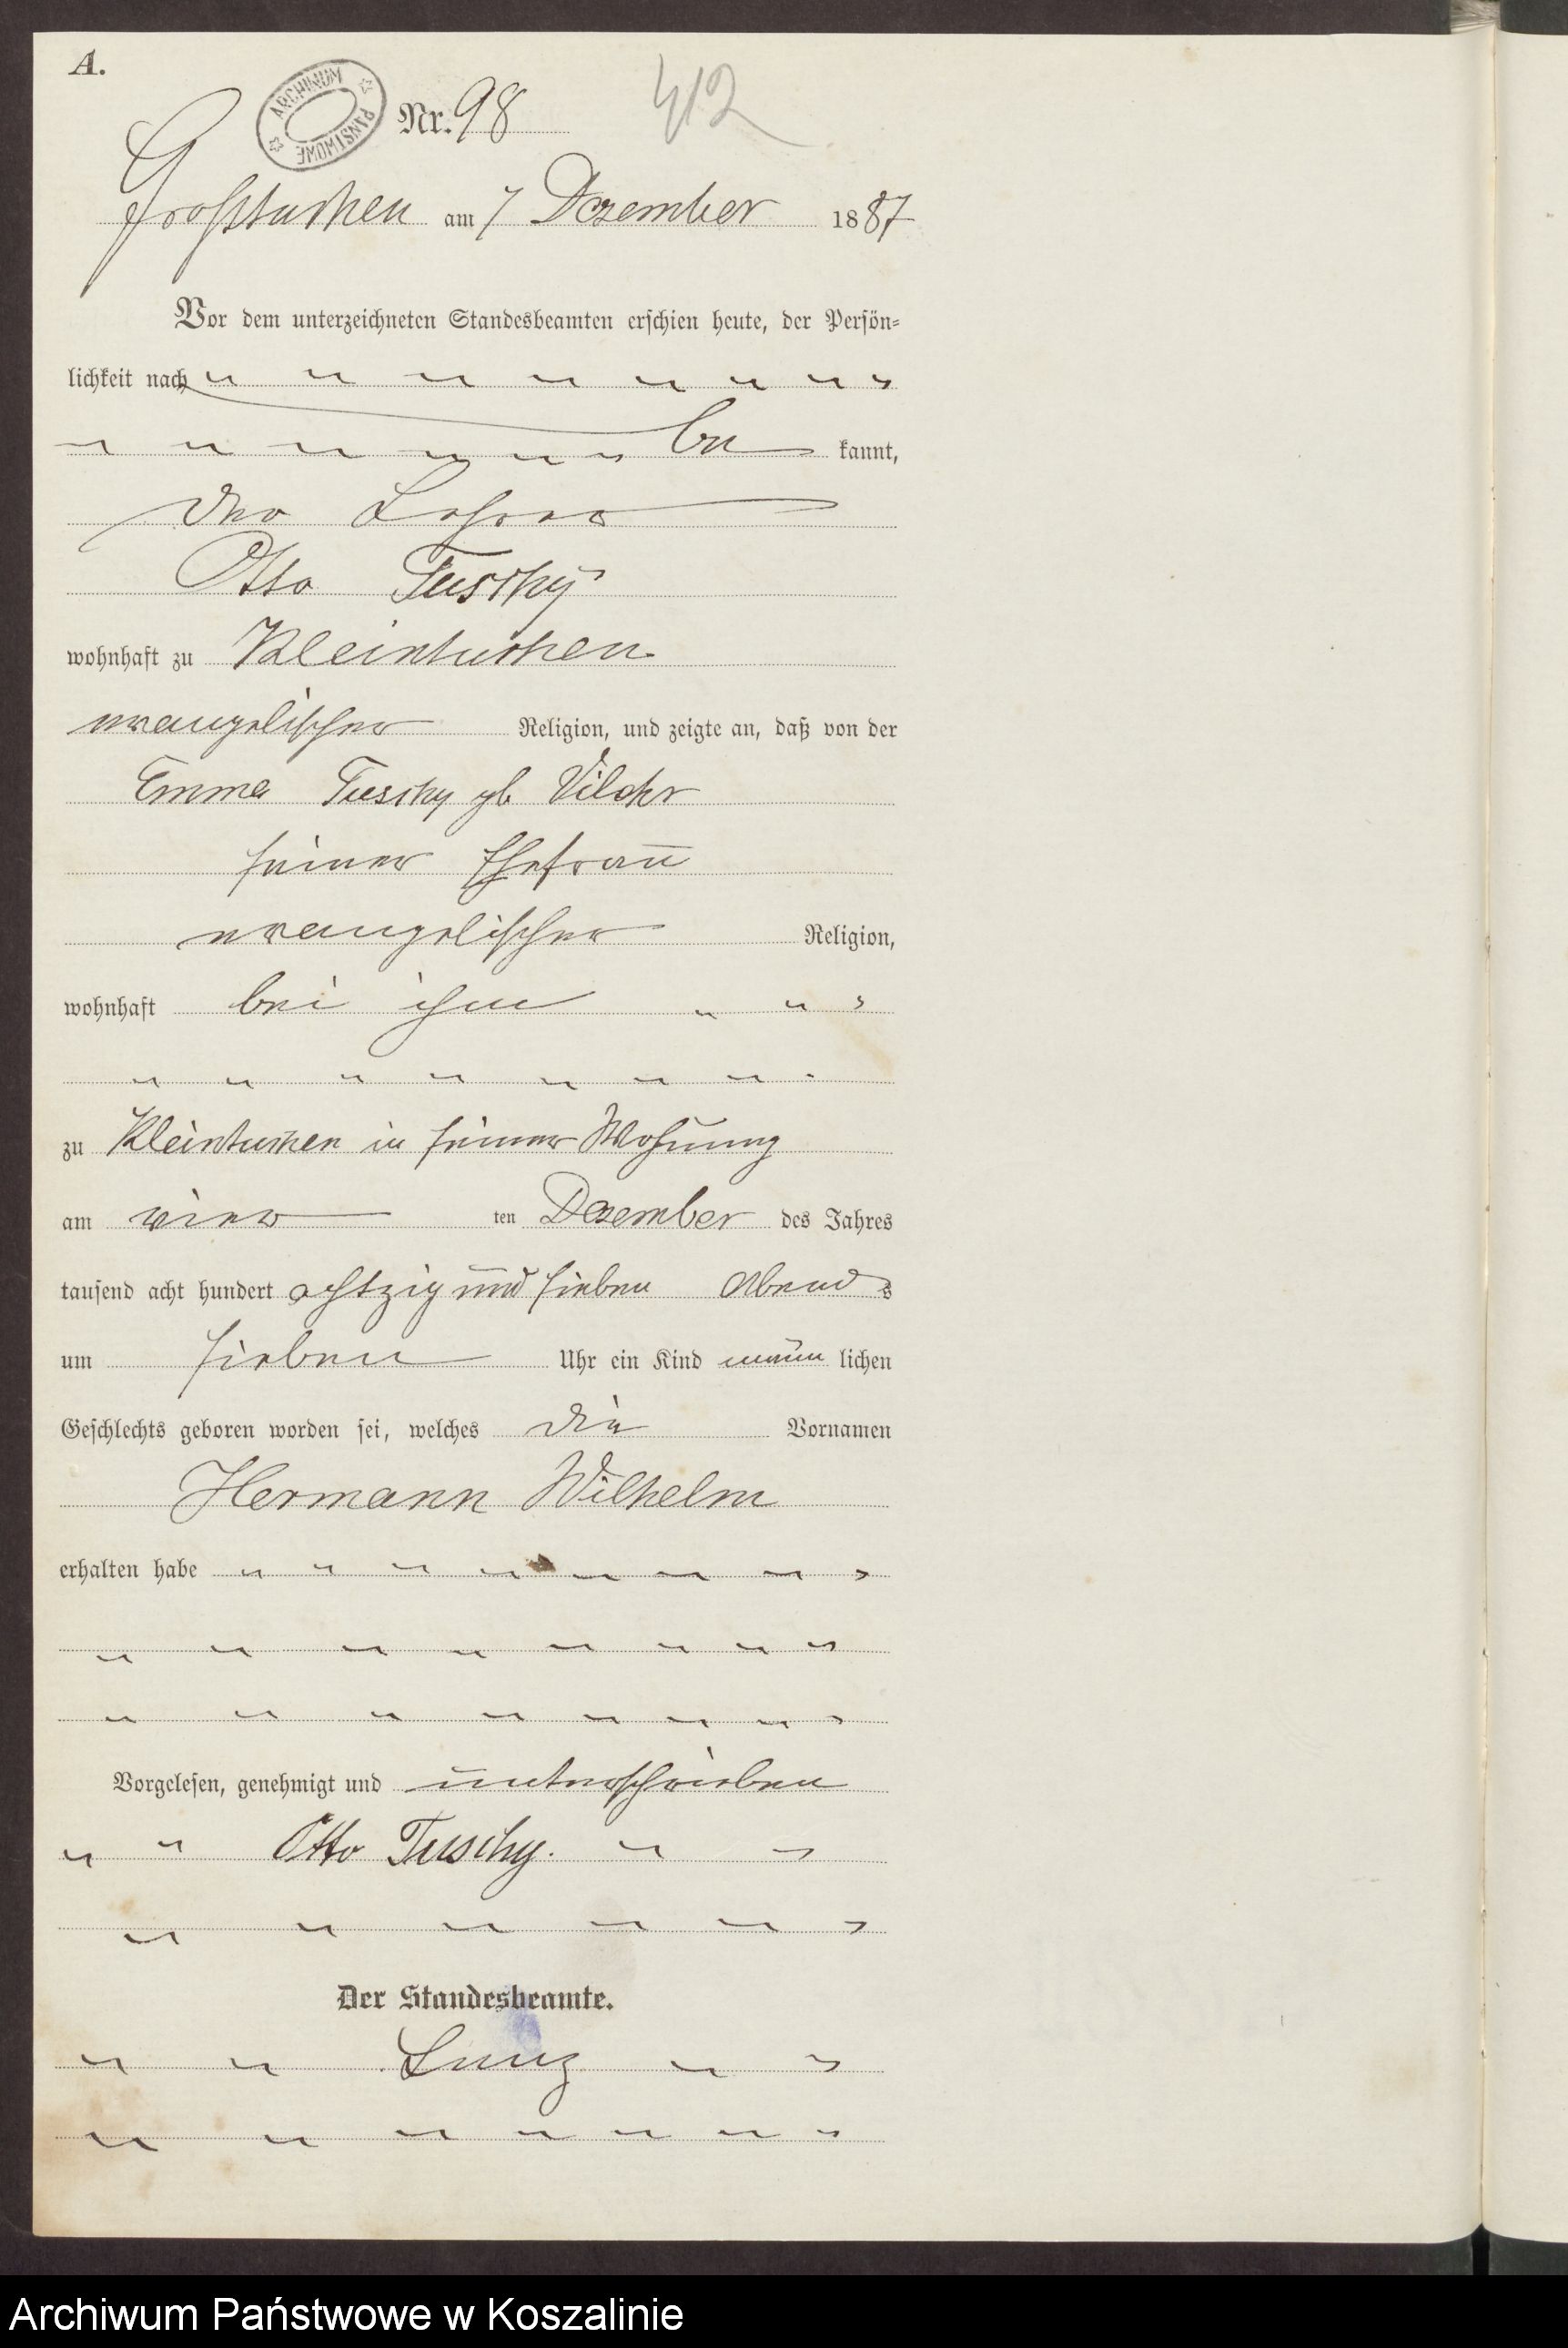 A.
ARCHIWUM PAŃSTWOWE
Nr. 98
412
Großtuchen am 7 Dezember 1887
Vor dem unterzeichneten Standesbeamten erschien heute, der Persön-
lichkeit nach
be kannt,
der Lehrer
Otto Tuschy
wohnhaft zu Kleintuchen
evangelischer Religion, und zeigte an, daß von der
Emma Tuschy gb
seiner Ehefrau
evangelischer Religion,
wohnhaft bei ihm
zu Kleintuchen in seiner Wohnung
am vier ten Dezember des Jahres
tausend acht hundert achtzig und sieben Abends
um sieben Uhr ein Kind männ lichen
Geschlechts geboren worden sei, welches die Vornamen
Hermann Wilhelm
erhalten habe
Vorgelesen, genehmigt und unterschrieben
Otto Tuschy.
Der Standesbeamte.
Archiwum Państwowe w Koszalinie